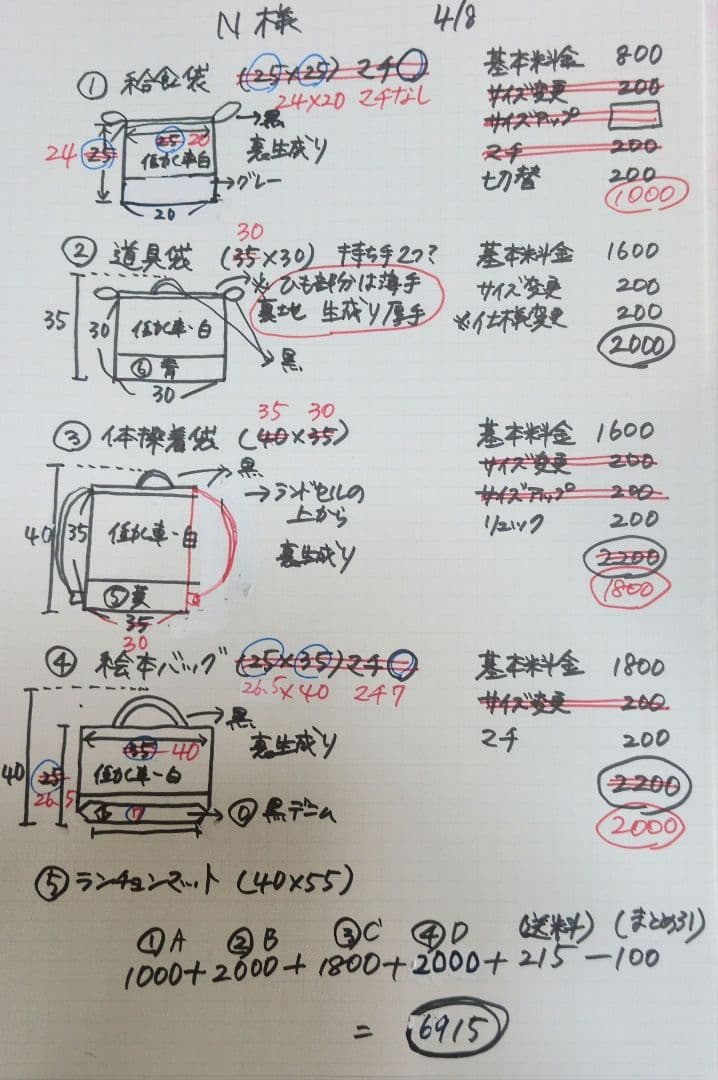 N 様 4/8
① 給食袋 (25×25) マチ〇
24×20 マチなし
基本料金 800
サイズ変更 200
サイズアップ
マチ 200
切替 200
1000
→黒
裏生成り
24 25
25 20
白
→グレー
20
② 道具袋 (35×30) 持ち手2つ?
30
※ひも部分は薄手
裏地 生成り厚手
基本料金 1600
サイズ変更 200
※仕様変更 200
2000
35
30
車・白
⑥ 青
→黒
30
③ 体操着袋 (40×35)
35 30
基本料金 1600
サイズ変更 200
サイズアップ 200
リュック 200
2200
1800
黒
→ランドセルの
上から
裏生成り
40
35
車・白
⑤ 黄
35
30
④ 絵本バッグ (25×35) マチ〇
26.5×40 マチ7
基本料金 1800
サイズ変更 200
マチ 200
2200
2000
→黒
裏生成り
40
25
26.5
35 40
車・白
7
→⓪ 黒デニム
⑤ ランチョンマット (40×55)
①A ②B ③C ④D (送料) (まとめ割)
1000+2000+1800+2000+215-100
= 6915